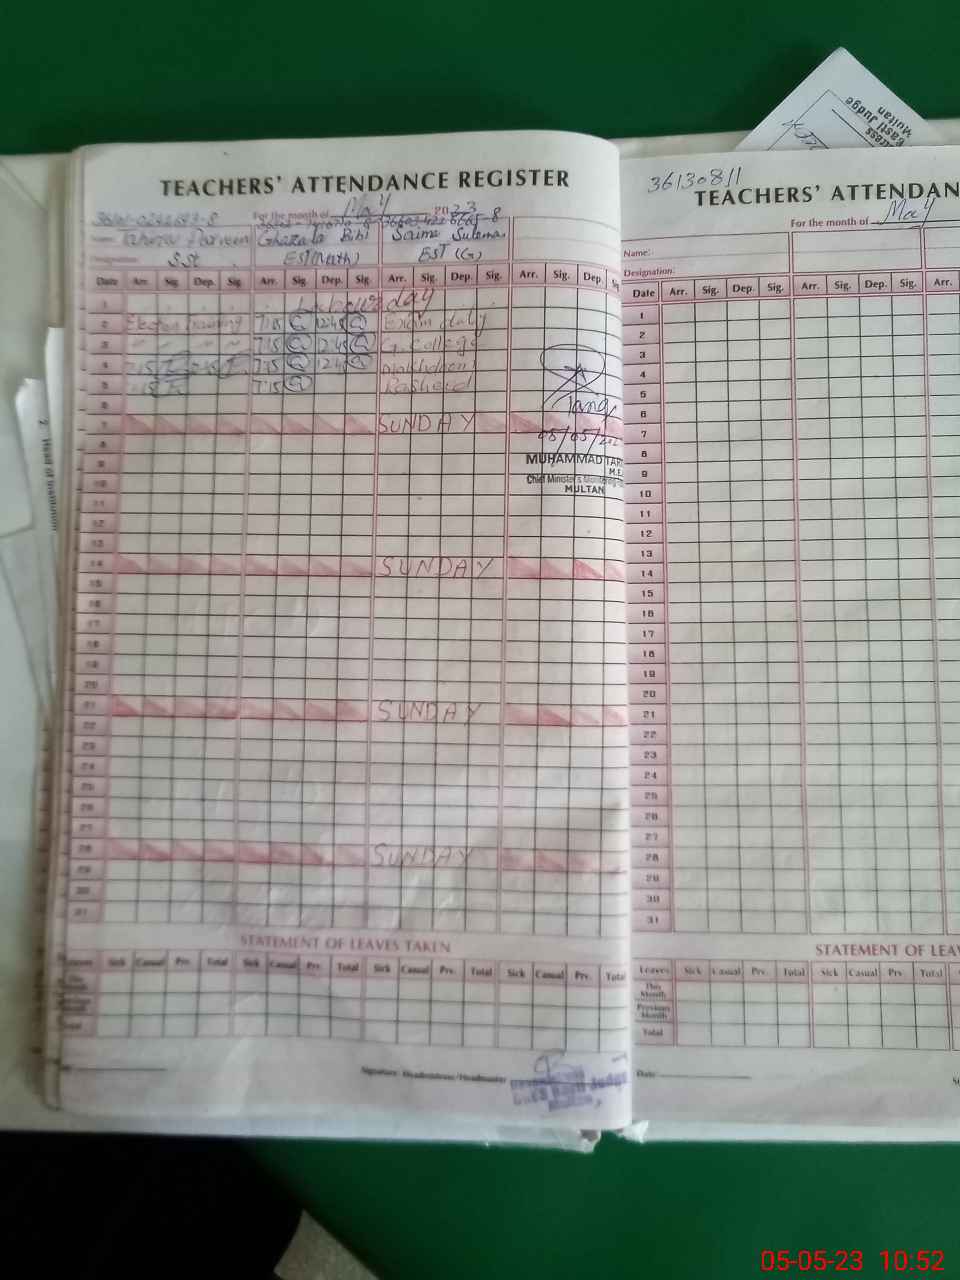 ccess
Basti Judge
Multan
TEACHERS' ATTENDANCE REGISTER
For the month of May 2023
Name: Tahira Parveen Ghazala Bibi Saima Suleman
Designation: SST EST (Math) EST (G)
Date Arr. Sig. Dep. Sig. Arr. Sig. Dep. Sig. Arr. Sig. Dep. Sig. Arr. Sig. Dep. Sig.
1 Labour day
2 Election Training 7:15 12:45 Exam duty
3 7:15 12:45 G. College
4 7:15 7:15 12:45
5 7:15 7:15 Rasheed
6
7 SUNDAY
8
9
10
11
12
13
14 SUNDAY
15
16
17
18
19
20
21 SUNDAY
22
23
24
25
26
27
28 SUNDAY
29
30
31
Tariq
05/05/202
MUHAMMAD TARI
M.E.
Chief Minister's Monitoring
MULTAN
STATEMENT OF LEAVES TAKEN
Leaves Sick Casual Prv. Total Sick Casual Prv. Total Sick Casual Prv. Total Sick Casual Prv. Total
Month
Month
Total
Signature Headmistress/Headmaster
Multan
2 Head of Institution
36130811
TEACHERS' ATTENDAN
For the month of May
Name:
Designation:
Date Arr. Sig. Dep. Sig. Arr. Sig. Dep. Sig. Arr.
1
2
3
4
5
6
7
8
9
10
11
12
13
14
15
16
17
18
19
20
21
22
23
24
25
26
27
28
29
30
31
STATEMENT OF LEA
Leaves Sick Casual Prv. Total Sick Casual Prv. Total
This Month
Previous Month
Total
Date
05-05-23 10:52